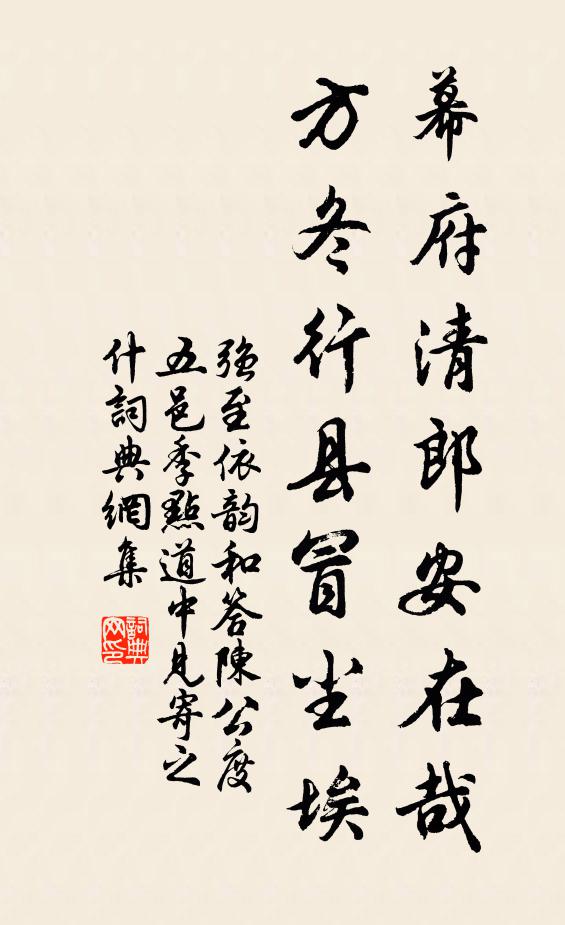 幕府清郎安在哉
方冬行县冒尘埃
強至依韵和答陳公度
五邑季點道中見寄之
什詞典網集
詞典网印